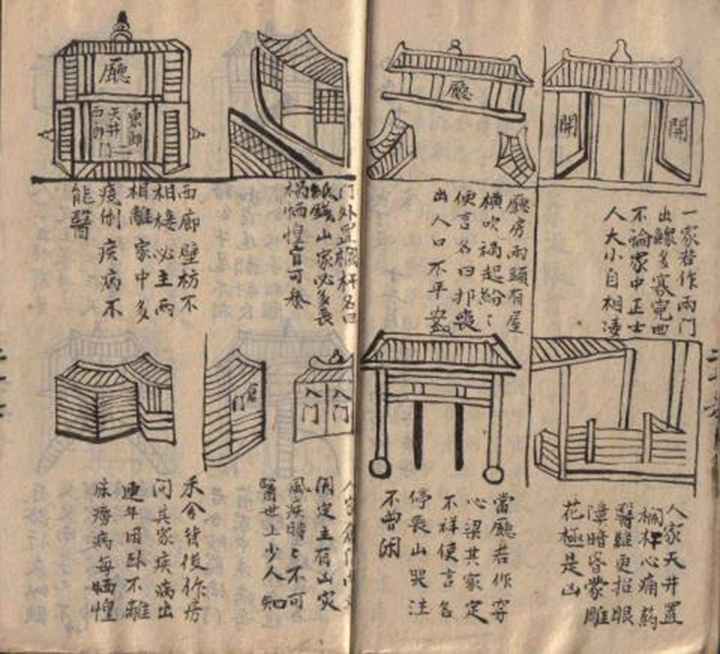 開
開
一家若作兩門
出鰥多寡寃屈
不論家中正士
人大小自相凌
廳
廳房兩頭有屋
横吹禍起紛々
便言名曰扛喪
出人口不平安
人家天井置
欄杆心痛藥
醫難更招眼
障暗昏蒙雕
花極是山
當廳若作穿
心梁其家定
不祥便言名
停喪山哭注
不曾闲
門外置欄杆名曰
紙錢山家必多喪
禍恓惶
廳
東廊
天井
西廊
門
西廊壁枋不
相接必主兩
相離家中多
疫倒疾病不
能醫
入門
入門
倉門
人家倉門
開定主有山灾
風疾時々不可
醫世上少人知
禾倉背後作房
问其家疾病出
連年困卧不離
床癆病每恓惶